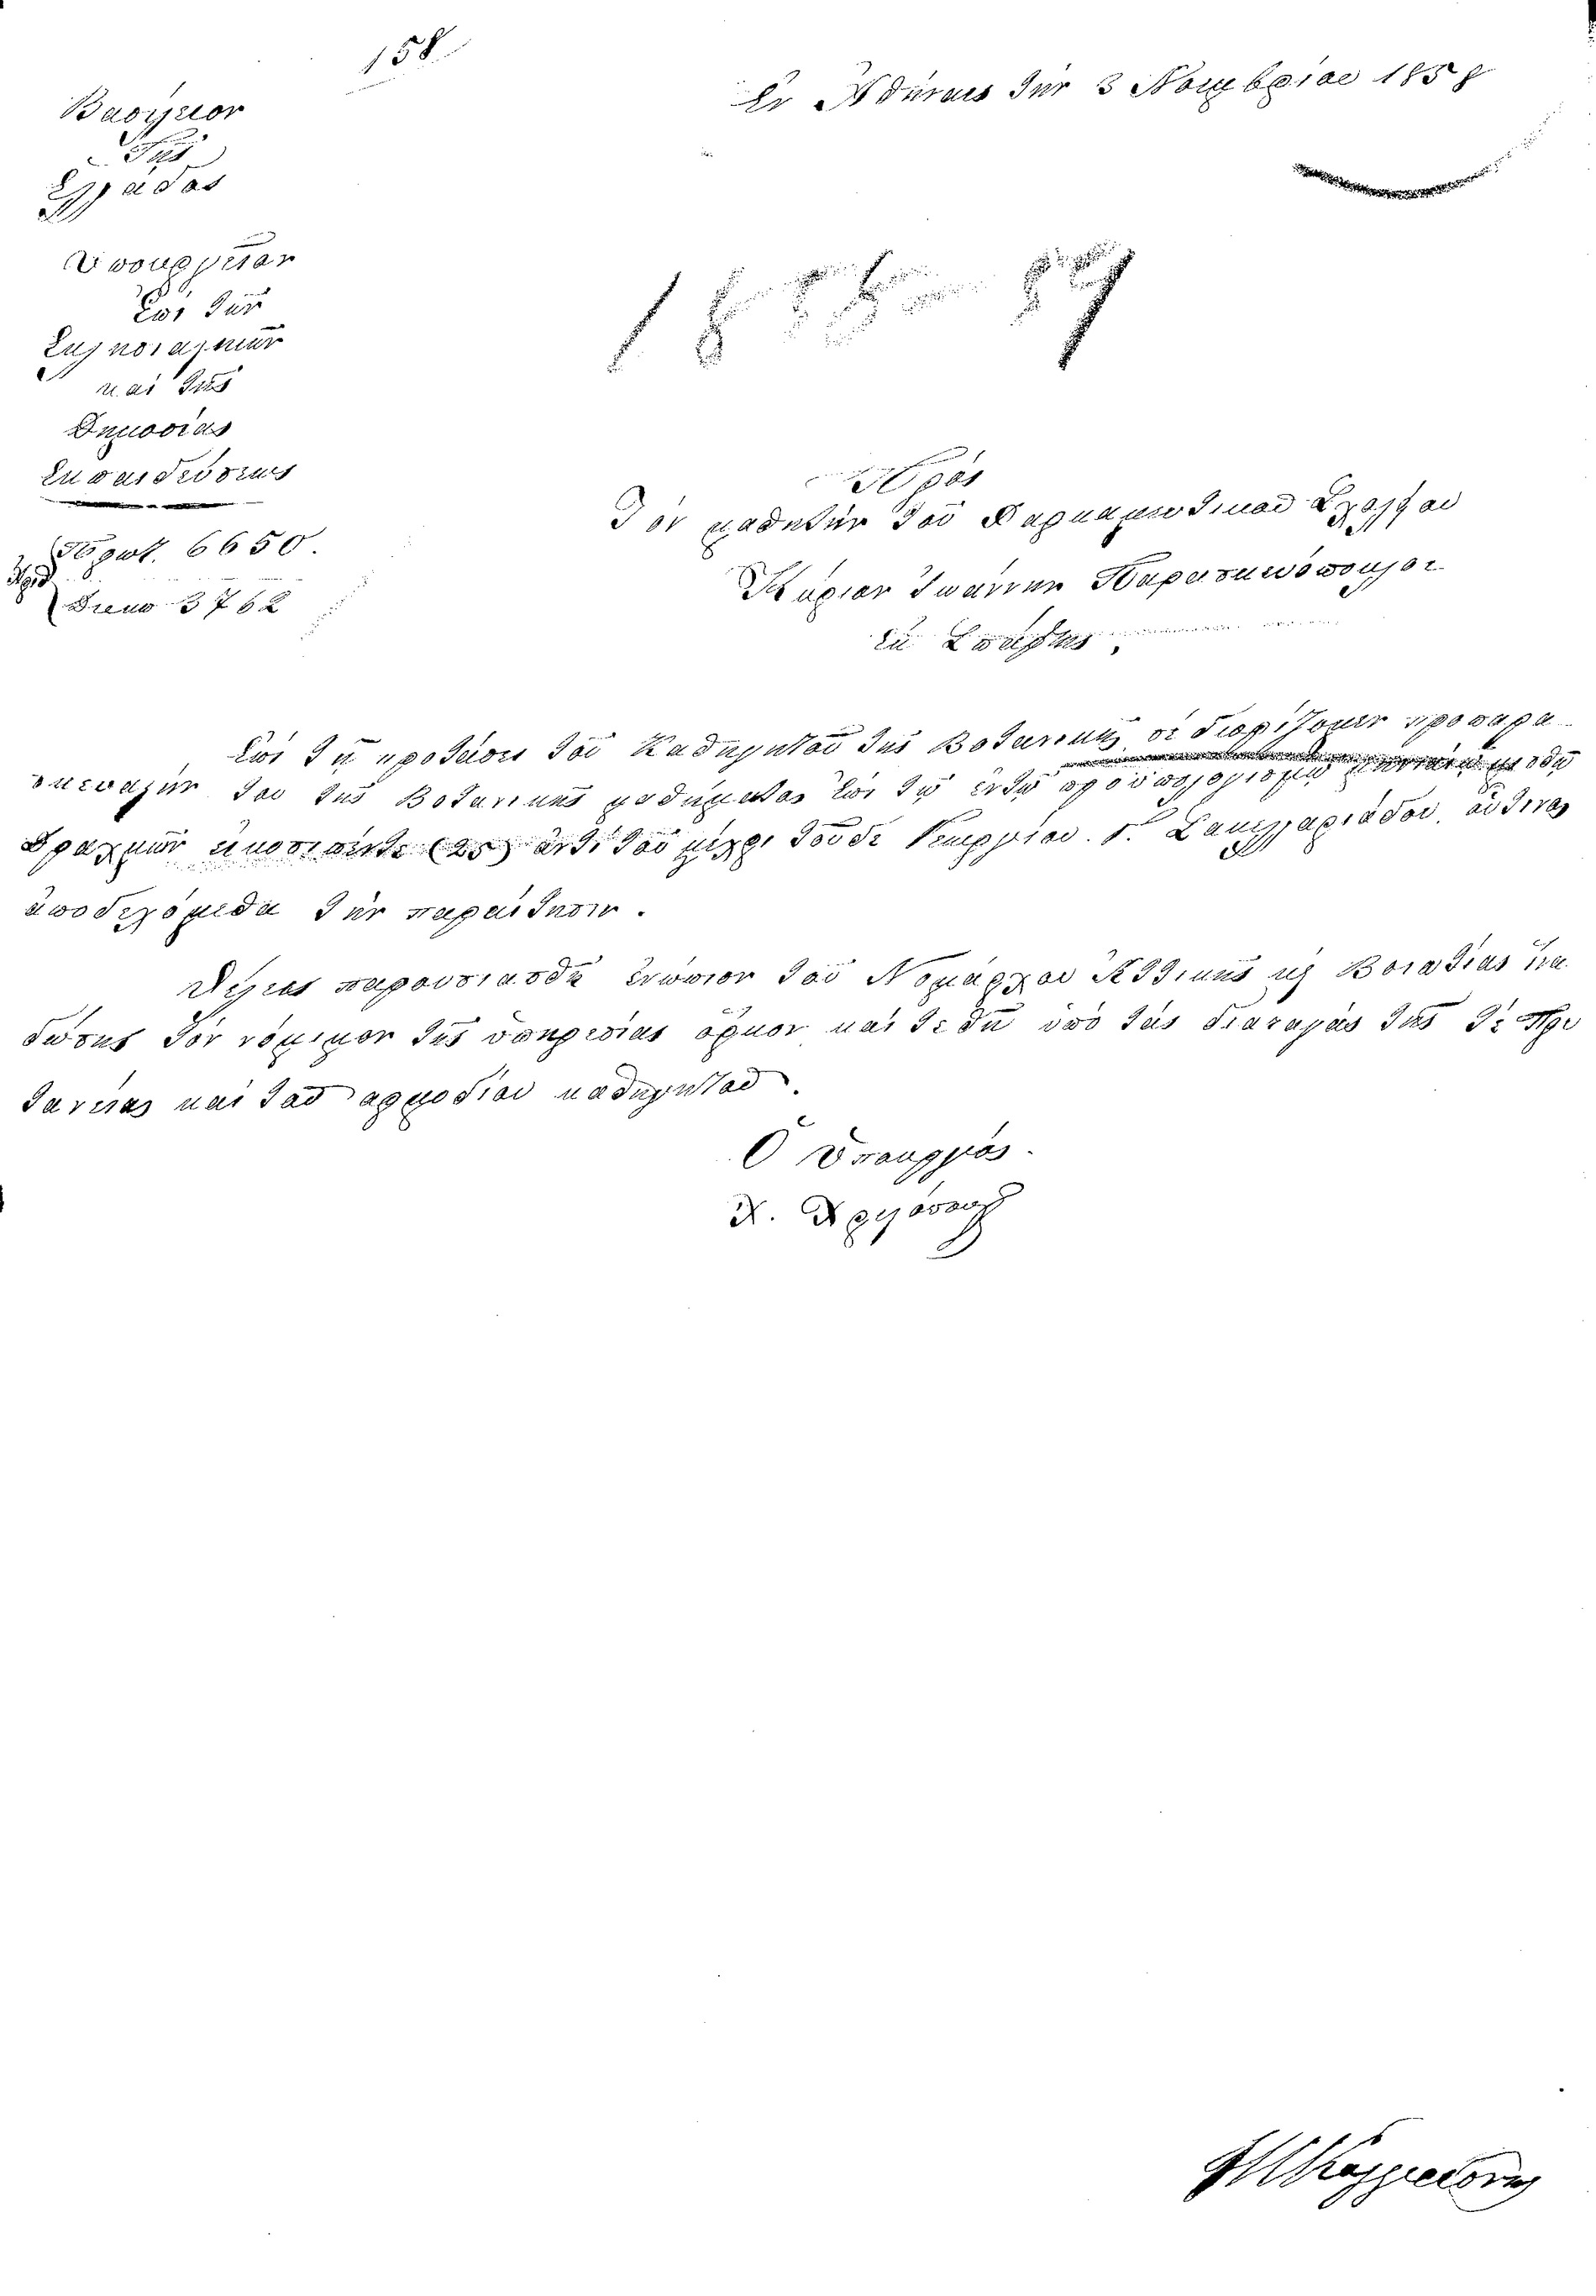 158
Ἐν Ἀθήναις τὴν 3 Νοεμβρίου 1858
Βασίλειον
τῆς
Ἑλλάδος
1858-59
Ὑπουργεῖον
Ἐπὶ τῶν
Ἐκκλησιαστικῶν
καὶ τῆς
Δημοσίας
Ἐκπαιδεύσεως
Πρωτ. 6650.
Διεκπ 3762
Πρὸς
Τὸν μαθητὴν τοῦ Φαρμακευτικοῦ Σχολείου
Κύριον Ἰωάννην
Ἐπὶ τῇ προτάσει τοῦ Καθηγητοῦ τῆς Βοτανικῆς σὲ διορίζομεν προπαρα
σκευαστὴν τοῦ τῆς Βοτανικῆς μαθήματος ἐπὶ τῷ ἐν τῷ προϋπολογισμῷ μισθῷ
δραχμῶν εἰκοσιπέντε (25) ἀντὶ τοῦ μέχρι τοῦδε Γεωργίου Γ. οὗτινος
ἀποδεχόμεθα τὴν παραίτησιν.
Θέλεις παρουσιασθῆ ἐνώπιον τοῦ Νομάρχου Ἀττικῆς κ Βοιωτίας ἵνα
δώσῃς τὸν νόμιμον τῆς ὑπηρεσίας ὅρκον καὶ τεθῇ ὑπὸ τὰς διαταγὰς τῆς τε Πρυ
τανείας καὶ τοῦ ἁρμοδίου καθηγητοῦ.
Ὁ Ὑπουργὸς.
Χ. Χριστόπουλος